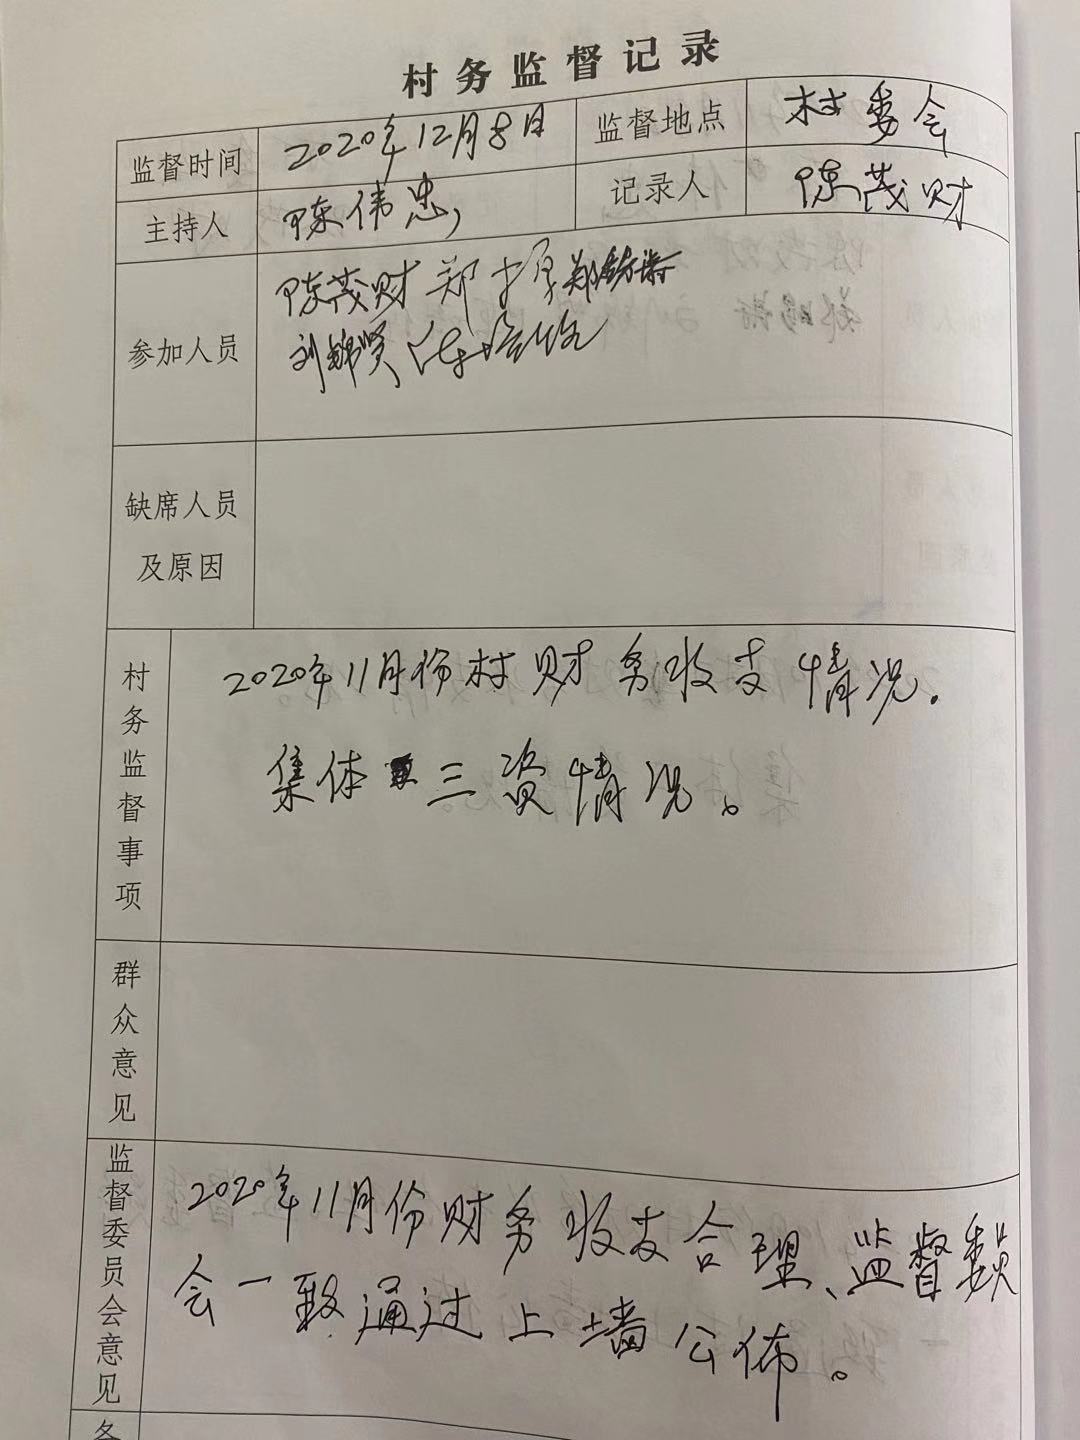 村务监督记录
监督时间 2020年12月8日 监督地点 村委会
主持人 陈伟忠 记录人 陈茂财
参加人员 陈茂财 郑
刘锦贤
缺席人员
及原因
村务监督事项 2020年11月份村财务收支情况。
集体三资情况。
群众意见
监督委员会意见 2020年11月份财务收支合理、监督委员
会一致通过上墙公佈。